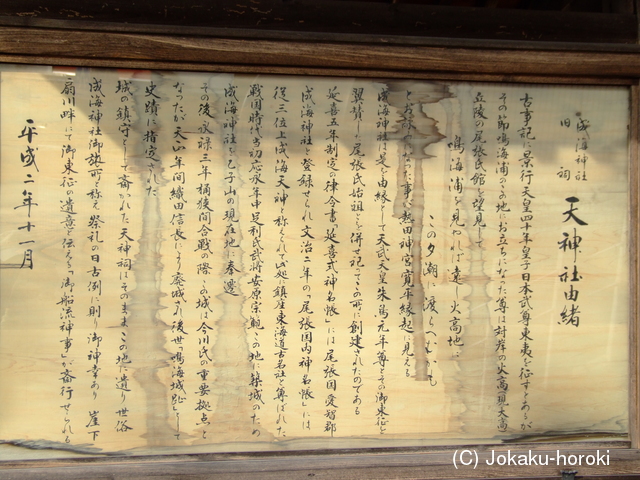 成海神社
旧祠
天神社由緒
古事記に景行天皇四十年皇子日本武尊東夷を征すとあるが
その節鳴海浦のこの地にお立ちになった尊は対岸の火高現大高
丘陵の尾張氏館を望見して
鳴海浦を見やれば遠し火高地に
この夕潮に渡らへむかも
とお詠みになった事が熱田神宮寛平縁起に見える
成海神社は是を由縁として天武天皇朱鳥元年尊とその御東征を
翼賛した尾張氏始祖を併せ祀ってこの所に創建されたのである
延喜五年制定の律令書「延喜式神名帳」には尾張国愛智郡
成海神社と登録せられ文治二年の「尾張国内神名帳」には
従三位上成海天神と称へられて此処に鎮座東海道古名社と尊ばれた
戦国時代当初応永年中足利氏武将安原宗範この地に築城のため
成海神社を乙子山の現在地に奉遷
その後永禄三年桶狭間合戦の際この城は今川氏の重要拠点と
なったが天正年間織田信長により廃城され後世「鳴海城趾」として
史蹟に指定された
城の鎮守として斎かれた天神祠はそのままこの地に遺り世俗
成海神社御旅所と称へ祭礼の日古例に則り御神幸あり崖下
扇川畔にて御東征の遺意を伝える「御船流神事」が斎行せられる
平成二年十一月
(C) Jokaku-horoki